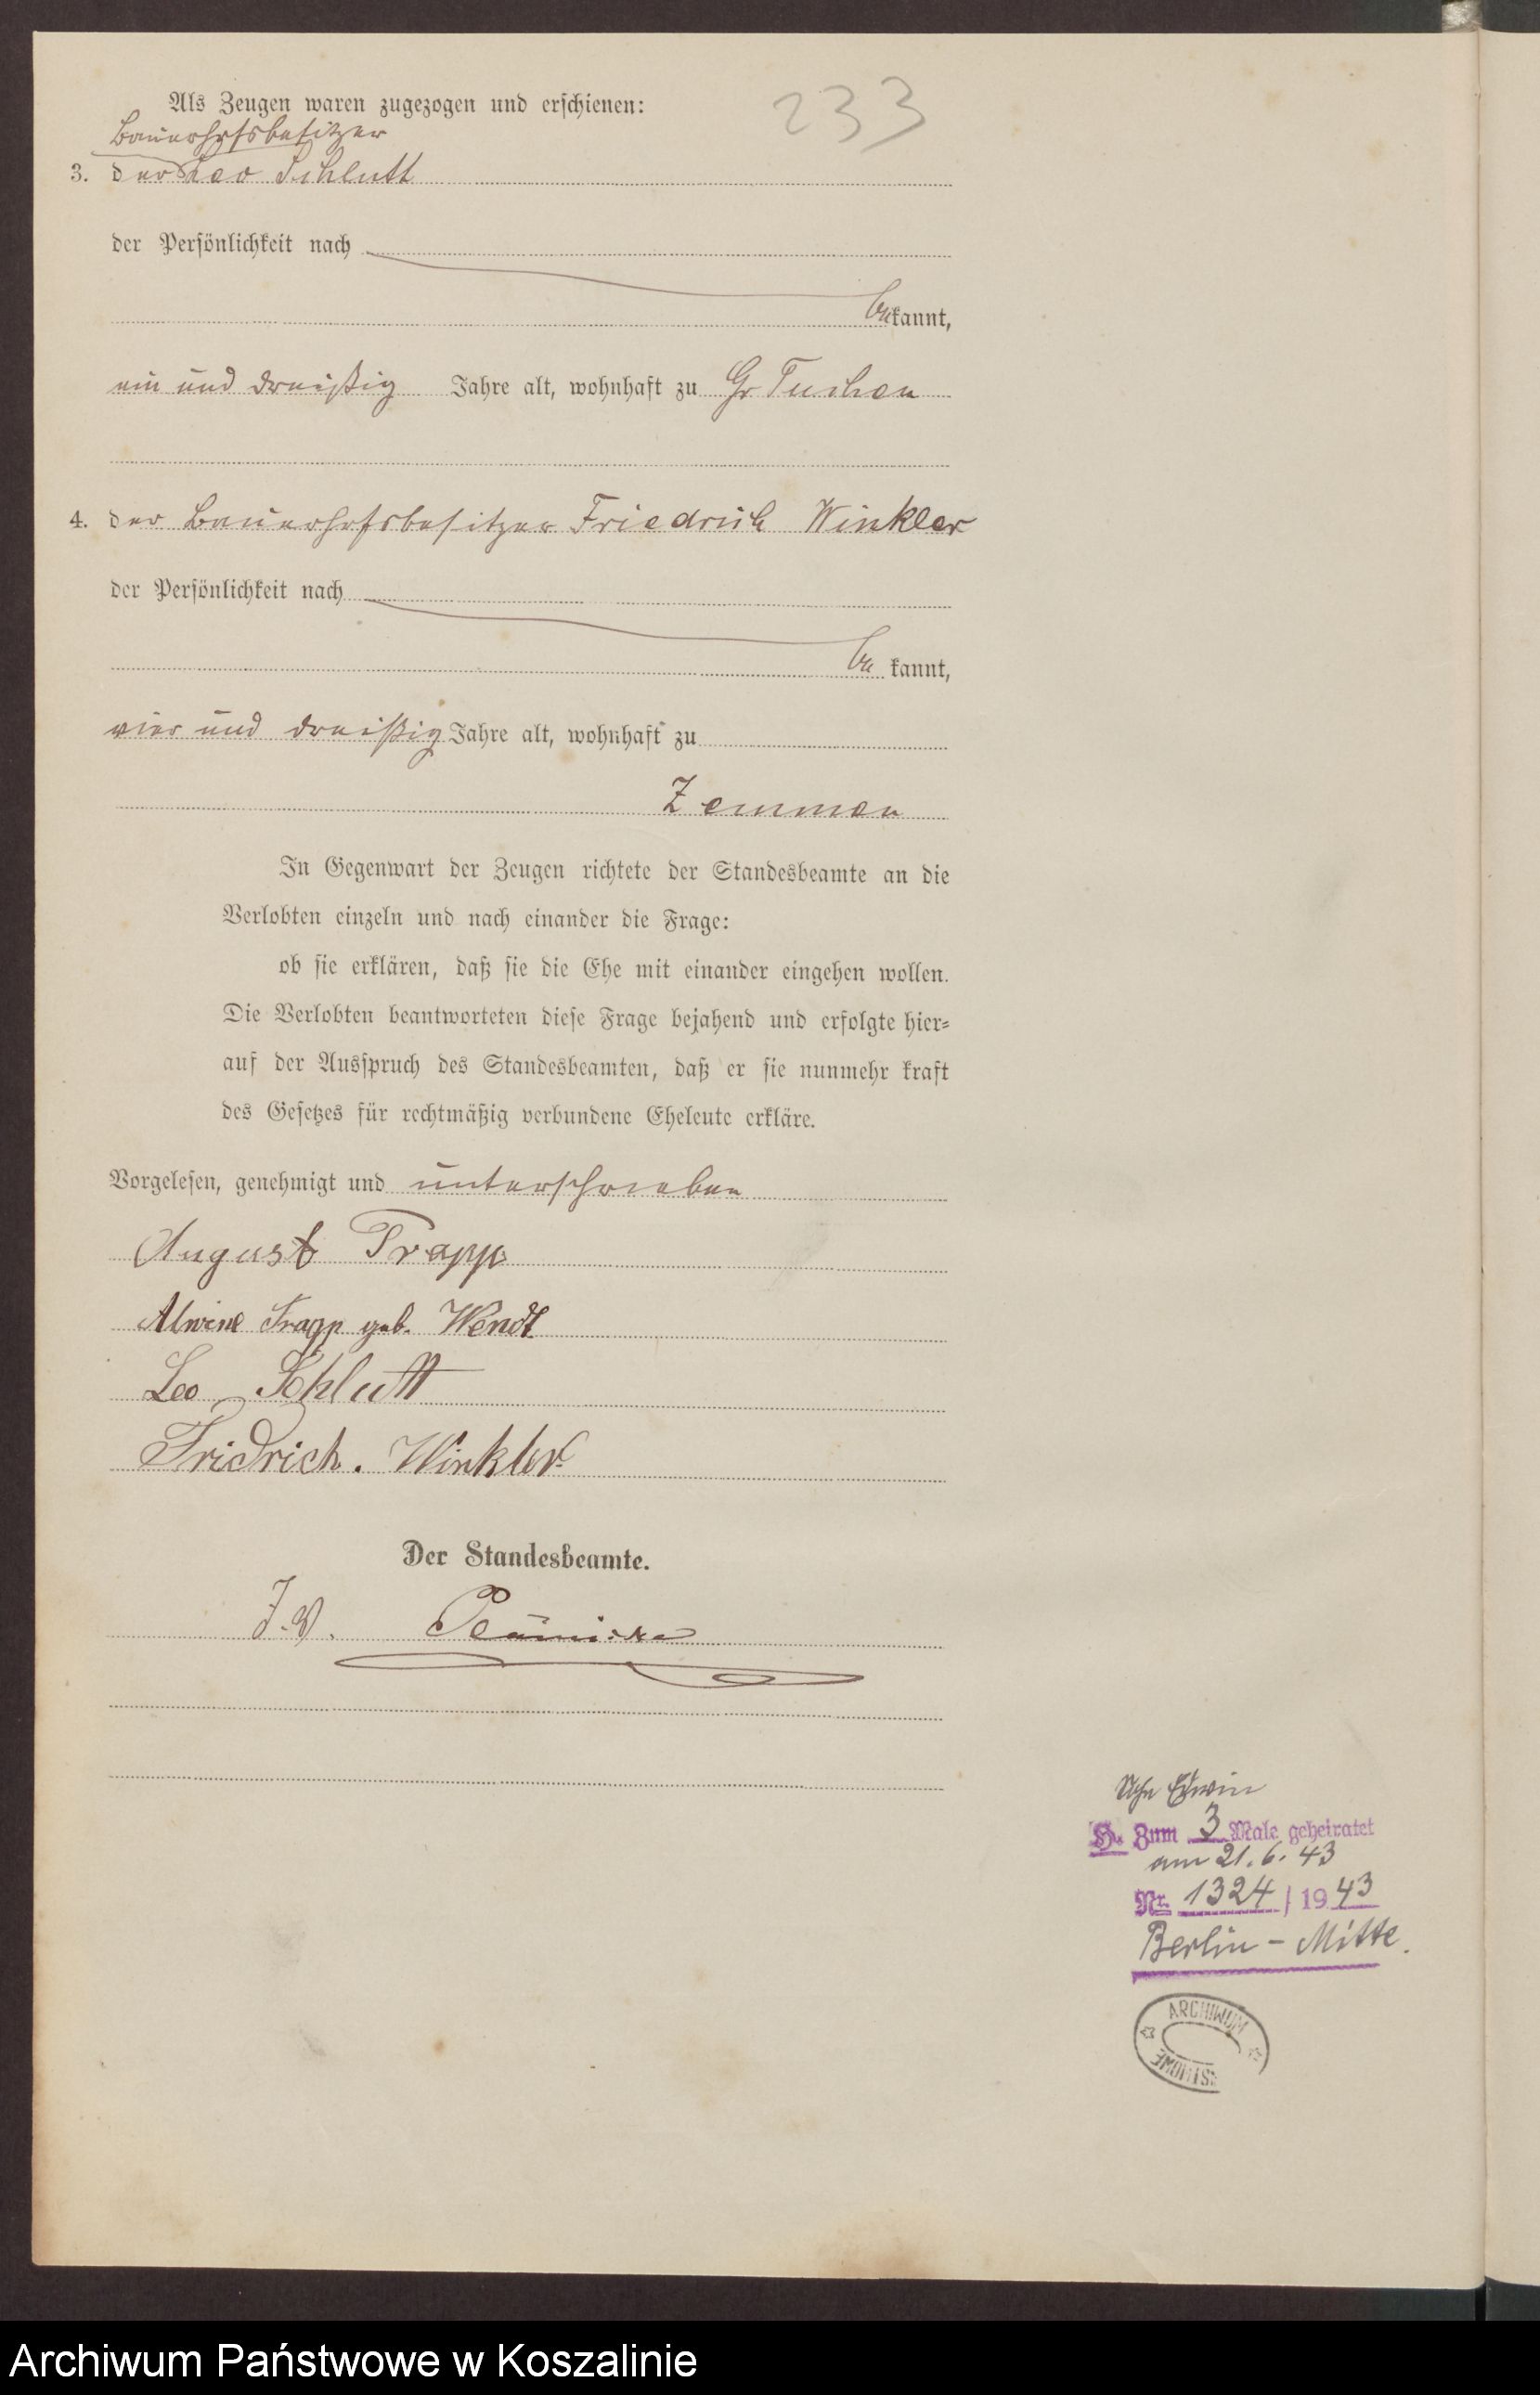 Als Zeugen waren zugezogen und erschienen:
233
Bauerhofsbesitzer
3. der Leo Schlutt
der Persönlichkeit nach
bekannt,
ein und dreißig Jahre alt, wohnhaft zu Gr Tuchen
4. der Bauerhofsbesitzer Friedrich Winkler
der Persönlichkeit nach
be kannt,
vier und dreißig Jahre alt, wohnhaft zu
Zemmen
In Gegenwart der Zeugen richtete der Standesbeamte an die
Verlobten einzeln und nach einander die Frage:
ob sie erklären, daß sie die Ehe mit einander eingehen wollen.
Die Verlobten beantworteten diese Frage bejahend und erfolgte hier=
auf der Ausspruch des Standesbeamten, daß er sie nunmehr kraft
des Gesetzes für rechtmäßig verbundene Eheleute erkläre.
Vorgelesen, genehmigt und unterschrieben
August Trapp
Alwine Trapp geb. Wendt
Leo Schlutt
Fridrich. Winkler
Der Standesbeamte.
J. V.
Erwin
S. Zum 3 Male geheiratet
am 21.6.43
Nr. 1324 / 1943
Berlin - Mitte.
ARCHIWUM
Archiwum Państwowe w Koszalinie